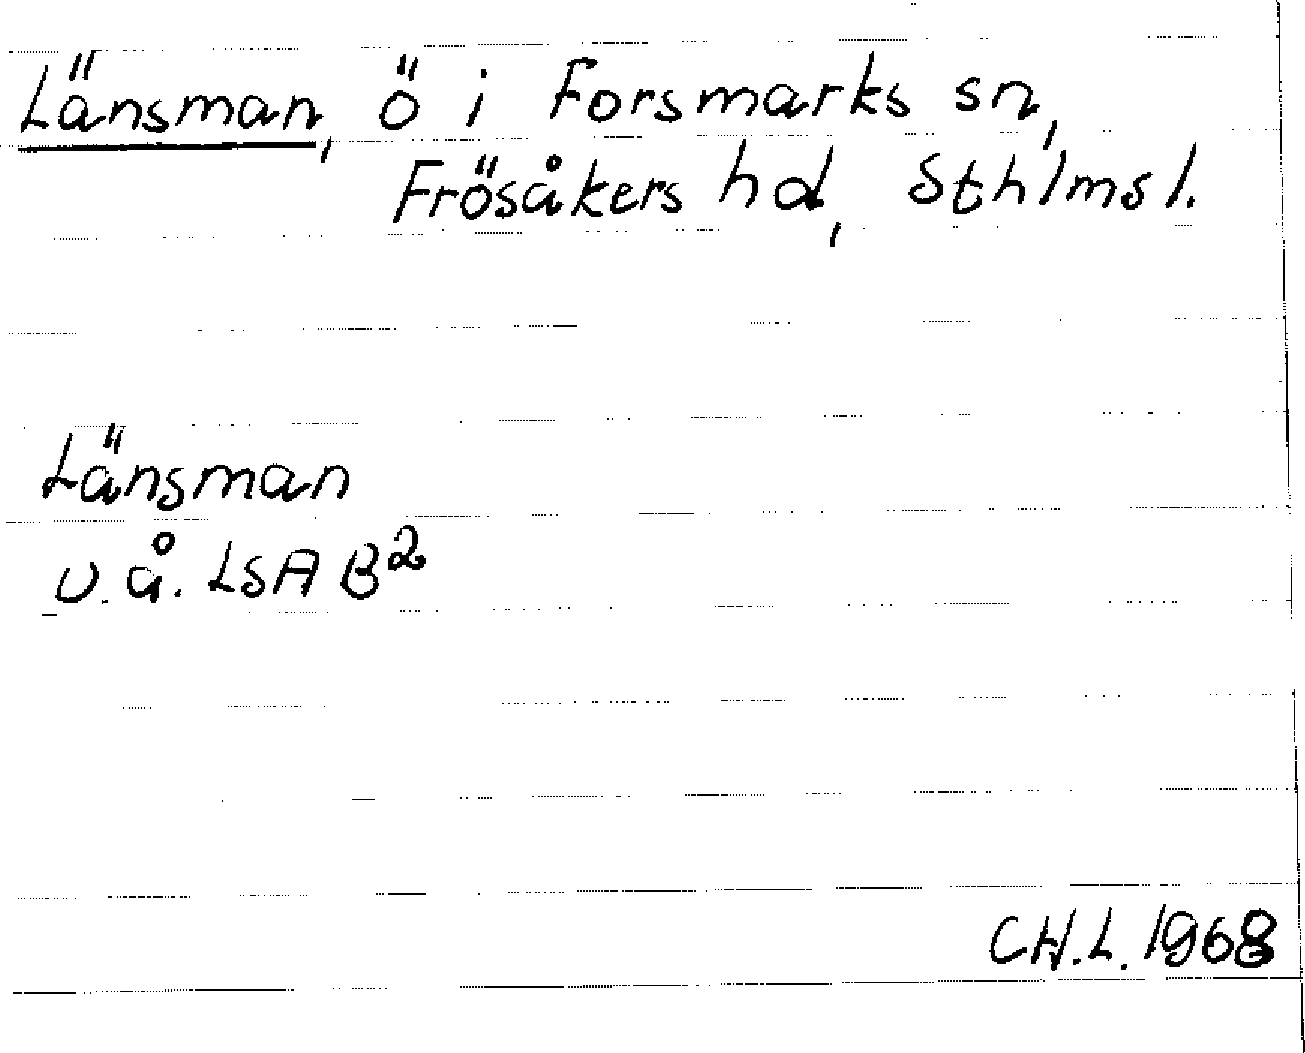 Länsman, ö i Forsmarks sn,
Frösåkers hd, Sthlms l.
Länsman
u.å. LSA B²
CH.L. 1968